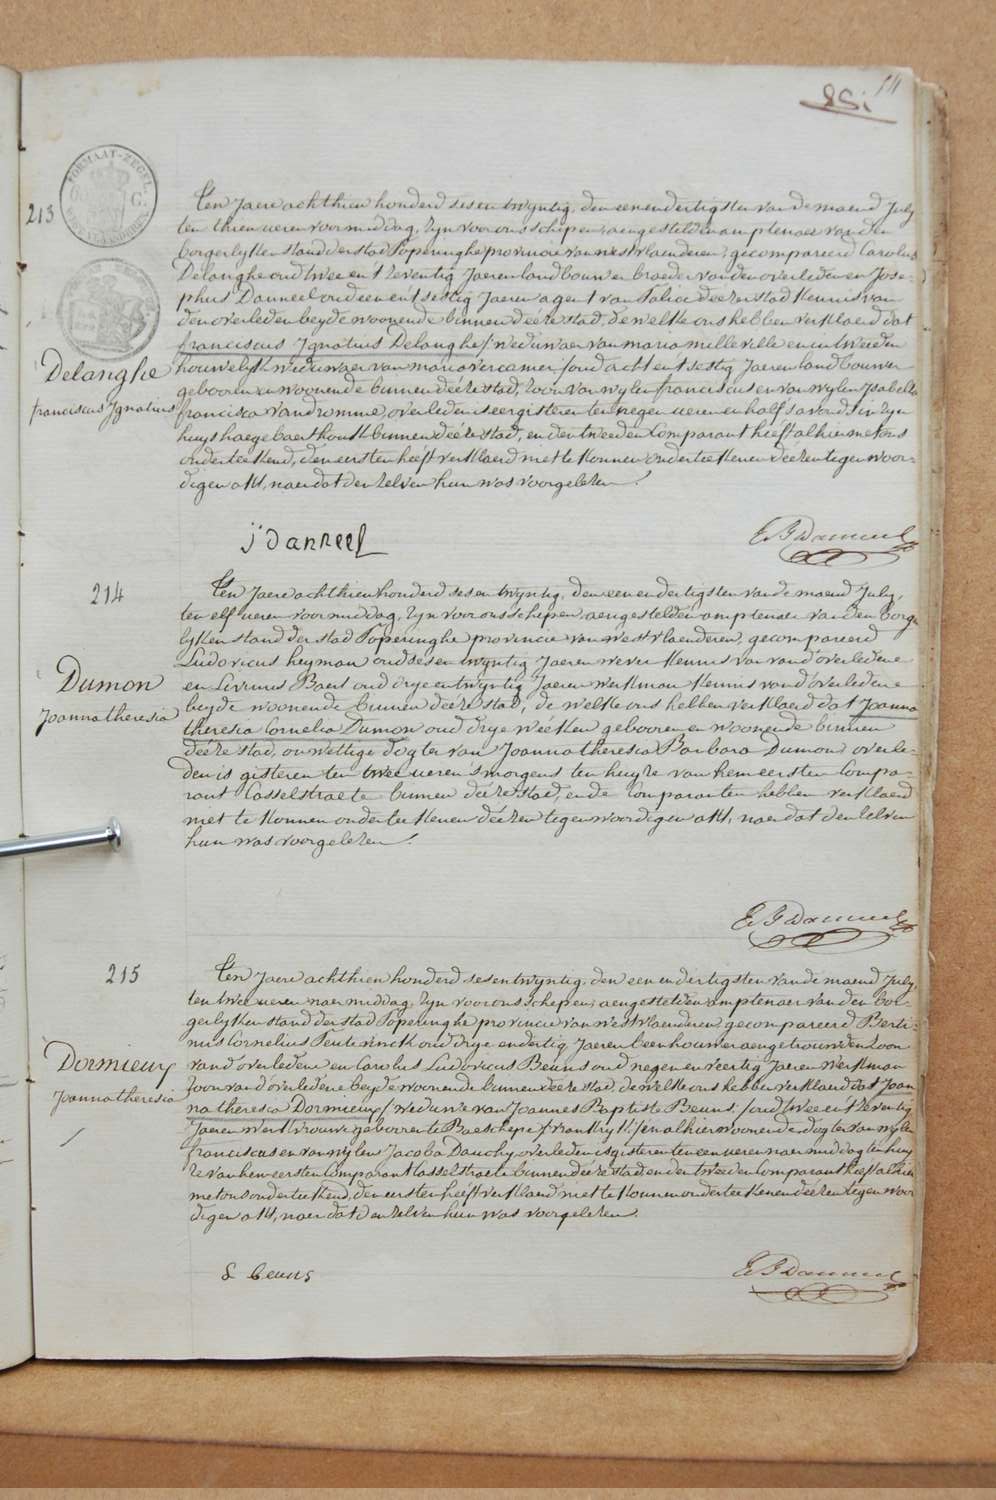 111
FORMAAT-ZEGEL.
213
Ten Jaere achthien honderd ses en twyntig, den een en dertigsten van de maend July
ten thien ueren voormiddag, zyn voor ons schepen, aengestelden amptenaer van den
borgerlyken stand der stad Poperinghe provincie van westvlaenderen, gecompareerd Carolus
Delanghe oud twee en tzeventig Jaeren landbouwer broeder van den overledenen Jose-
phus Danneel oud een en tsestig Jaeren agent van Police deeze stad kennis van
den overleden beyde woonende binnen deeze stad, de welke ons hebben verklaerd dat
franciscus Ignatius Delanghe / weduwaer van maria milleville en in tweeden
houwelyk weduwaer van maria vercamer / oud acht en tsestig Jaeren landbouwer
gebooren en woonende binnen deeze stad, zoon van wylen franciscus en van wylen Isabella
francisca vandromme, overleden is eergisteren ten negen ueren en half s avonds in zyn
huys haegebaerthoek binnen deeze stad, en den tweeden Comparant heeft alhier met ons
onderteekend, den eersten heeft verklaerd niet te konnen onderteekenen deezen tegenwoor-
digen akt, naer dat den zelven hun was voorgelezen.
Delanghe
franciscus Ignatius
j danneel
214
Ten Jaere achthien honderd ses en twyntig, den een en dertigsten van de maend July,
ten elf ueren voormiddag, zyn voor ons schepen, aengestelden amptenaer van den borger
lyken stand der stad Poperinghe provincie van westvlaenderen, gecompareerd
Ludovicus heyman oud ses en twyntig Jaeren wever kennis van d'overledene
en Livinus Baert oud drye en twyntig Jaeren werkman kennis van d'overledene
beyde woonende binnen deeze stad, de welke ons hebben verklaerd dat Joanna
theresia Cornelia Dumon oud drye weeken gebooren en woonende binnen
deeze stad, onwettige dogter van Joanna theresia Barbara Dumon, overle-
den is gisteren ten twee ueren 's morgens ten huyze van hem eersten Compa-
rant Casselstraete binnen deeze stad, en de Comparanten hebben verklaerd
niet te konnen onderteekenen deezen tegenwoordigen akt, naer dat den zelven
hun was voorgelezen.
Dumon
Joanna theresia
215
Ten Jaere achthien honderd ses en twyntig, den een en dertigsten van de maend July
ten twee ueren naermiddag, zyn voor ons schepen, aengestelden amptenaer van den bor-
gerlyken stand der stad Poperinghe provincie van westvlaenderen gecompareerd Berti-
nus Cornelius oud drye en dertig Jaeren beenhouwer aengetrouwden zoon
van d'overledene en Carolus Ludovicus Beuns oud negen en veertig Jaeren werkman
zoon van d'overledene beyde woonende binnen deeze stad, de welke ons hebben verklaerd dat Joan-
na theresia Dormieux / weduwe van Joannes Baptiste Beuns / oud twee en tzeventig
Jaeren werkvrouwe gebooren te Baeschepe / vrankryk / en alhier woonende dogter van wylen
franciscus en van wylen Jacoba Dauchy overleden is gisteren ten een ueren naermiddag ten huy-
ze van hem eersten Comparant Casselstraete binnen deeze stad en den tweeden Comparant heeft alhier
met ons onderteekend, den eersten heeft verklaerd niet te konnen onderteekenen deezen tegenwoor-
digen akt, naer dat den zelven hun was voorgelezen.
Dormieux
Joanna theresia
Beuns